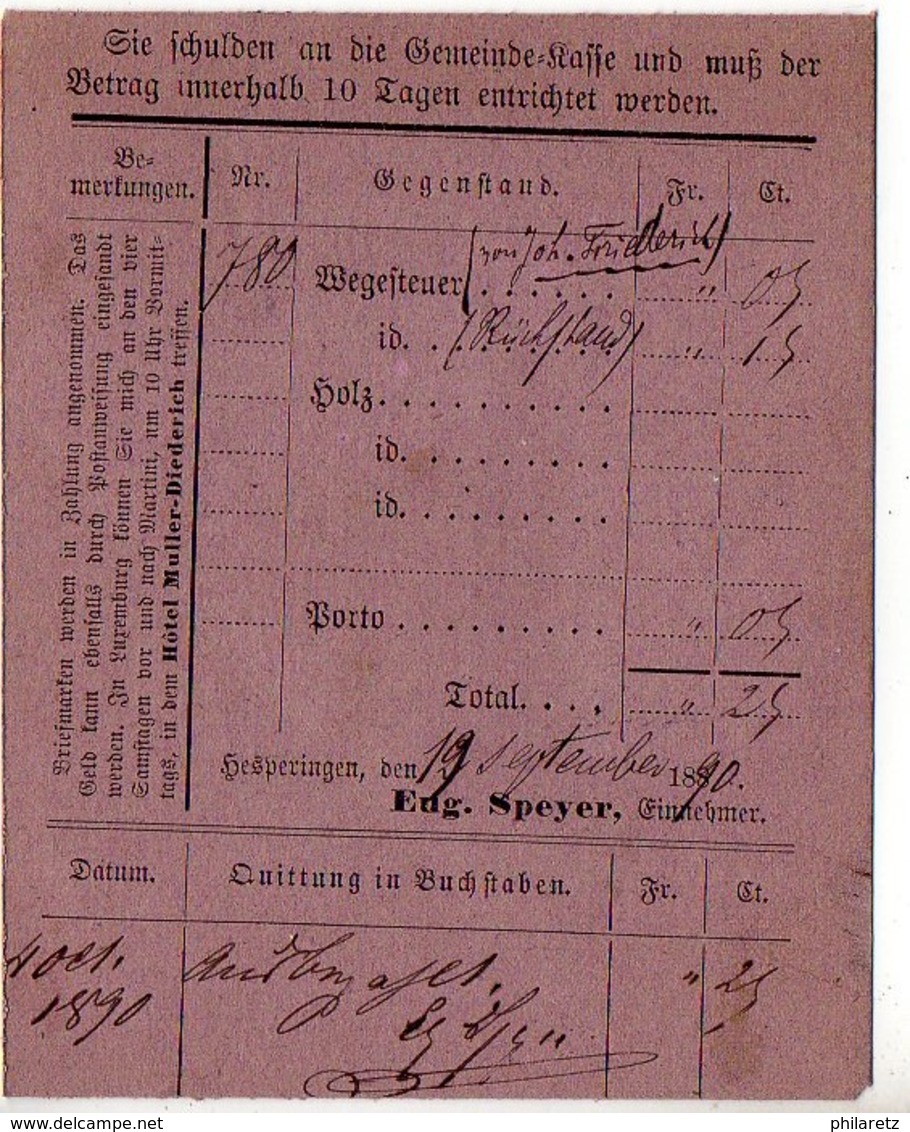 Sie schulden an die Gemeinde-Kasse und muß der
Betrag innerhalb 10 Tagen entrichtet werden.
Be-
merkungen.
Nr.
Gegenstand.
Fr.
Ct.
Briefmarken werden in Zahlung angenommen. Das
Geld kann ebenfalls durch Postanweisung eingesandt
werden. In Luxemburg können Sie mich an den vier
Samstagen vor und nach Martini, um 10 Uhr Vormit-
tags, in dem Hôtel Muller-Diederich treffen.
780 Wegesteuer (von Joh. Friederich) . . . . . . " 05
id. . (Rückstand) " 15
Holz. . . . . . . . . .
id. . . . . . . . .
id. . . . . . . . .
Porto . . . . . . . . . " 05
Total. . . . " 25
Hesperingen, den 19 September 1890.
Eug. Speyer, Einnehmer.
Datum.
Quittung in Buchstaben.
Fr.
Ct.
4 oct. " 25
1890